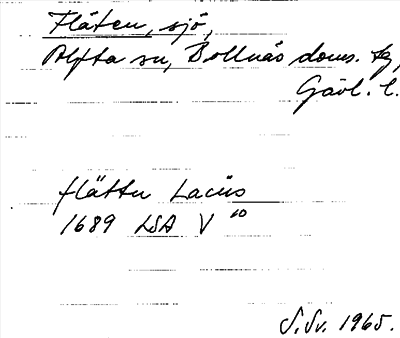 Fläten, sjö,
Alfta sn, Bollnäs doms. tg,
Gävl. l.
flätten Lacus
1689 LSA V 10
S. Sv. 1965.